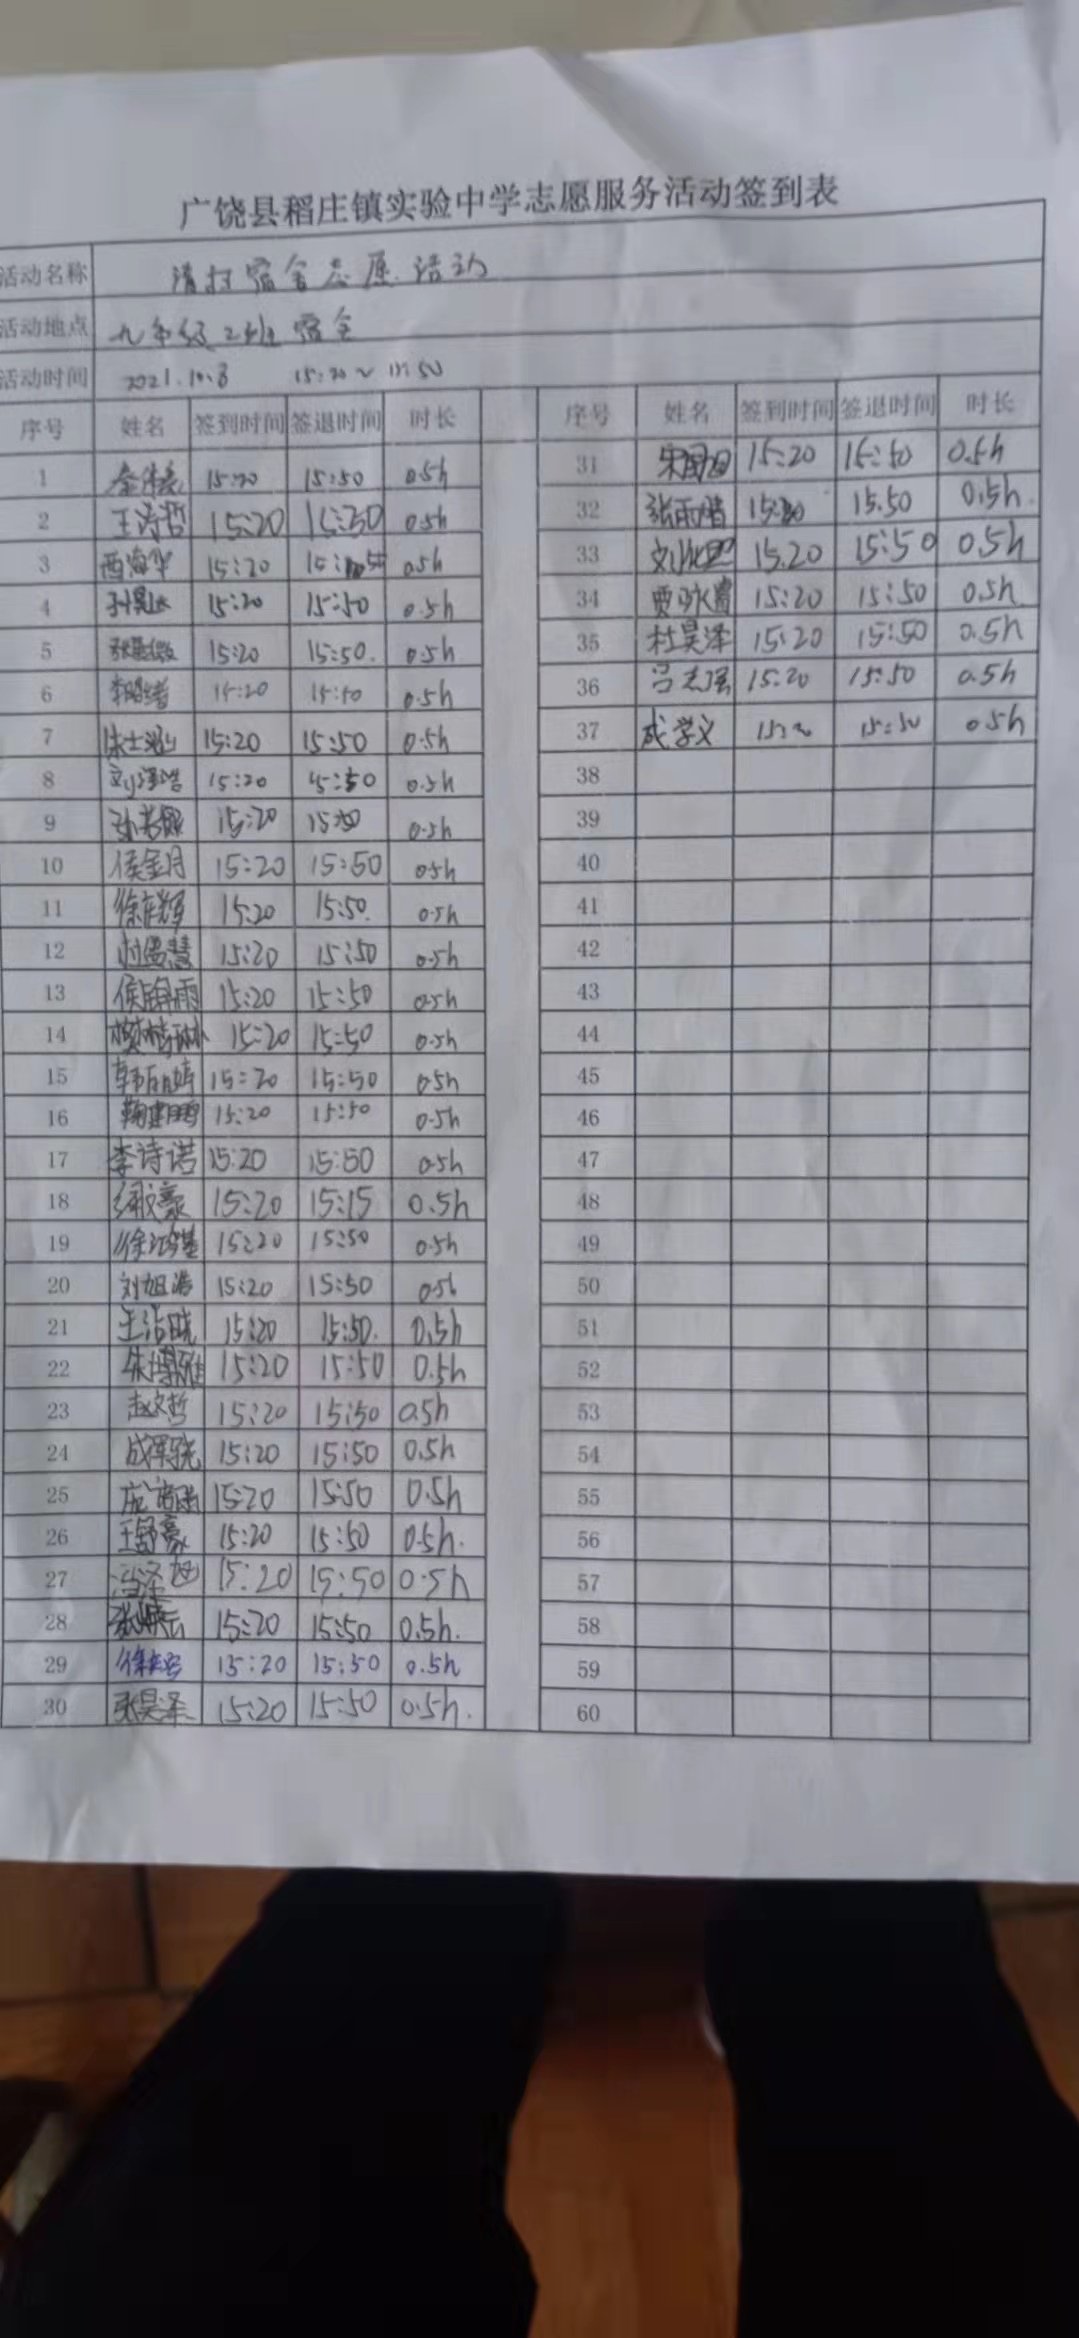 广饶县稻庄镇实验中学志愿服务活动签到表
活动名称 清扫宿舍志愿活动
活动地点 九年级2班宿舍
活动时间 2021.10.8 15:20~15:50
序号 姓名 签到时间 签退时间 时长 序号 姓名 签到时间 签退时间 时长
1 15:20 15:50 0.5h 31 15:20 15:50 0.5h
2 王涛哲 15:20 15:50 0.5h 32 张雨晴 15:50 0.5h
3 15:20 0.5h 33 15.20 15:50 0.5h
4 15:20 15:50 0.5h 34 15:20 15:50 0.5h
5 15:20 15:50 0.5h 35 杜昊泽 15:20 15:50 0.5h
6 15:20 15:50 0.5h 36 吕志强 15:20 15:50 0.5h
7 15:20 15:50 0.5h 37 成学义 15:20 15:50 0.5h
8 15:20 15:50 0.5h 38
9 15:20 15:50 0.5h 39
10 侯金月 15:20 15:50 0.5h 40
11 15:20 15:50 0.5h 41
12 15:20 15:50 0.5h 42
13 15:20 15:50 0.5h 43
14 15:20 15:50 0.5h 44
15 15:20 15:50 0.5h 45
16 鞠建鹏 15:20 15:50 0.5h 46
17 李诗诺 15:20 15:50 0.5h 47
18 15:20 15:15 0.5h 48
19 15:20 15:50 0.5h 49
20 刘旭浩 15:20 15:50 0.5h 50
21 15:20 15:50 0.5h 51
22 15:20 15:50 0.5h 52
23 赵文哲 15:20 15:50 0.5h 53
24 15:20 15:50 0.5h 54
25 15:20 15:50 0.5h 55
26 15:20 15:50 0.5h 56
27 15:20 15:50 0.5h 57
28 15:20 15:50 0.5h 58
29 15:20 15:50 0.5h 59
30 张昊泽 15:20 15:50 0.5h 60